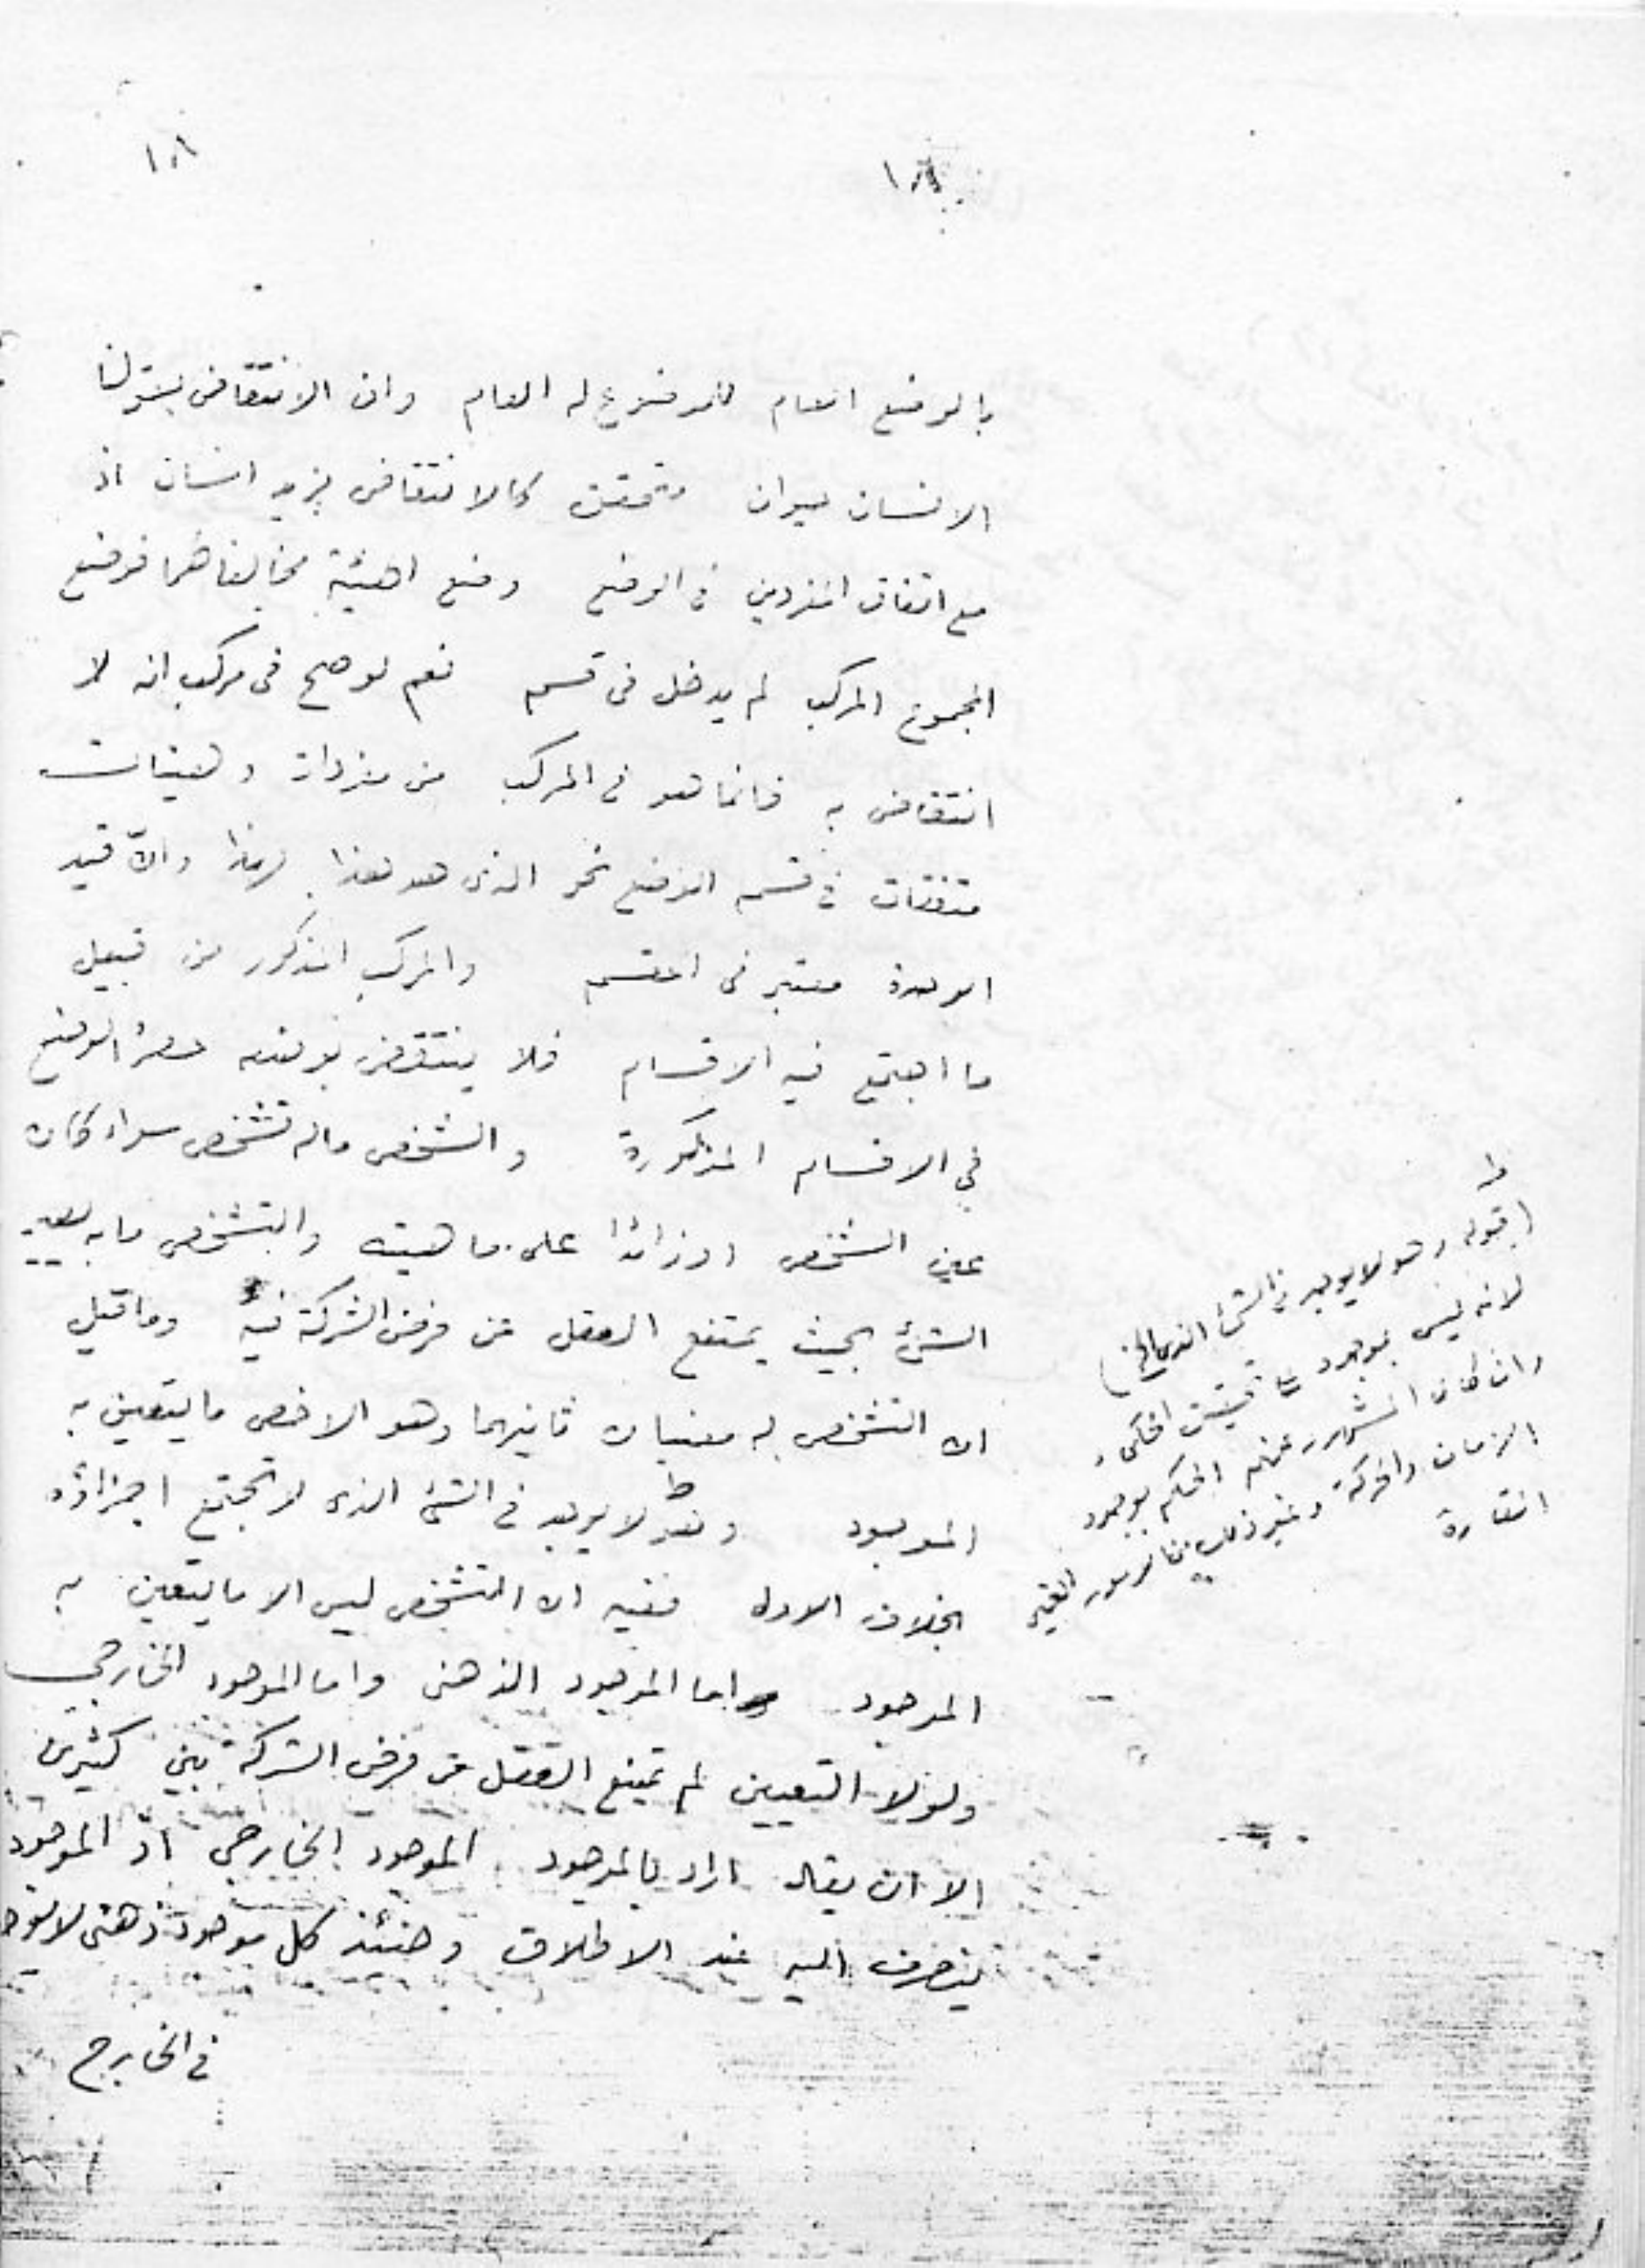 ١٨
بالوضع العام للموضوع له العام وان الانتقاض بقولنا
الانسان حيوان متحقق كالانتقاض بزيد انسان اذ
مع اتفاق المفردين في الوضع وضع الهيئة مخالفاهما فوضع
المجموع المركب لم يدخل في قسم نعم لو صح في مركب انه لا
انتقاض به فانما هو في المركب من مفردات وهيئات
متفقات في قسم الوضع نحو الذى هو هذا لهذا والا قيد
الوحدة معتبر في المقسم والمركب المذكور من قبيل
ما اجتمع فيه الاقسام فلا ينتقض بوضعه حصر الوضع
في الاقسام المذكورة والشخص ماله تشخص سواء كان
عين الشخص او زائدا على ماهيته والتشخص ما به يصير
الشئ بحيث يمتنع العقل عن فرض الشركة فيه وما قيل
ان التشخص له معنيان ثانيهما وهو الاخص ما يتعين به
الموجود وهو لا يوجد في الشئ الذى لا تجتمع اجزاؤه
بخلاف الاول ففيه ان التشخص ليس الا ما يتعين به
الموجود اما الموجود الذهنى واما الموجود الخارجى
ولولا التعيين لم يمنع العقل عن فرض الشركة بين كثيرين
الا ان يقال اراد بالموجود الموجود الخارجى اذ الموجود
ينصرف اليه عند الاطلاق وحينئذ كل موجود ذهنى لا يوجد
في الخارج
ط
(قوله وهو لا يوجد في الشئ الذى الخ)
لانه ليس بموجود تحقيق الحكماء
وان كان المشهور عنهم الحكم بوجود
الزمان والحركة وغير ذلك من الامور الغير
القارة